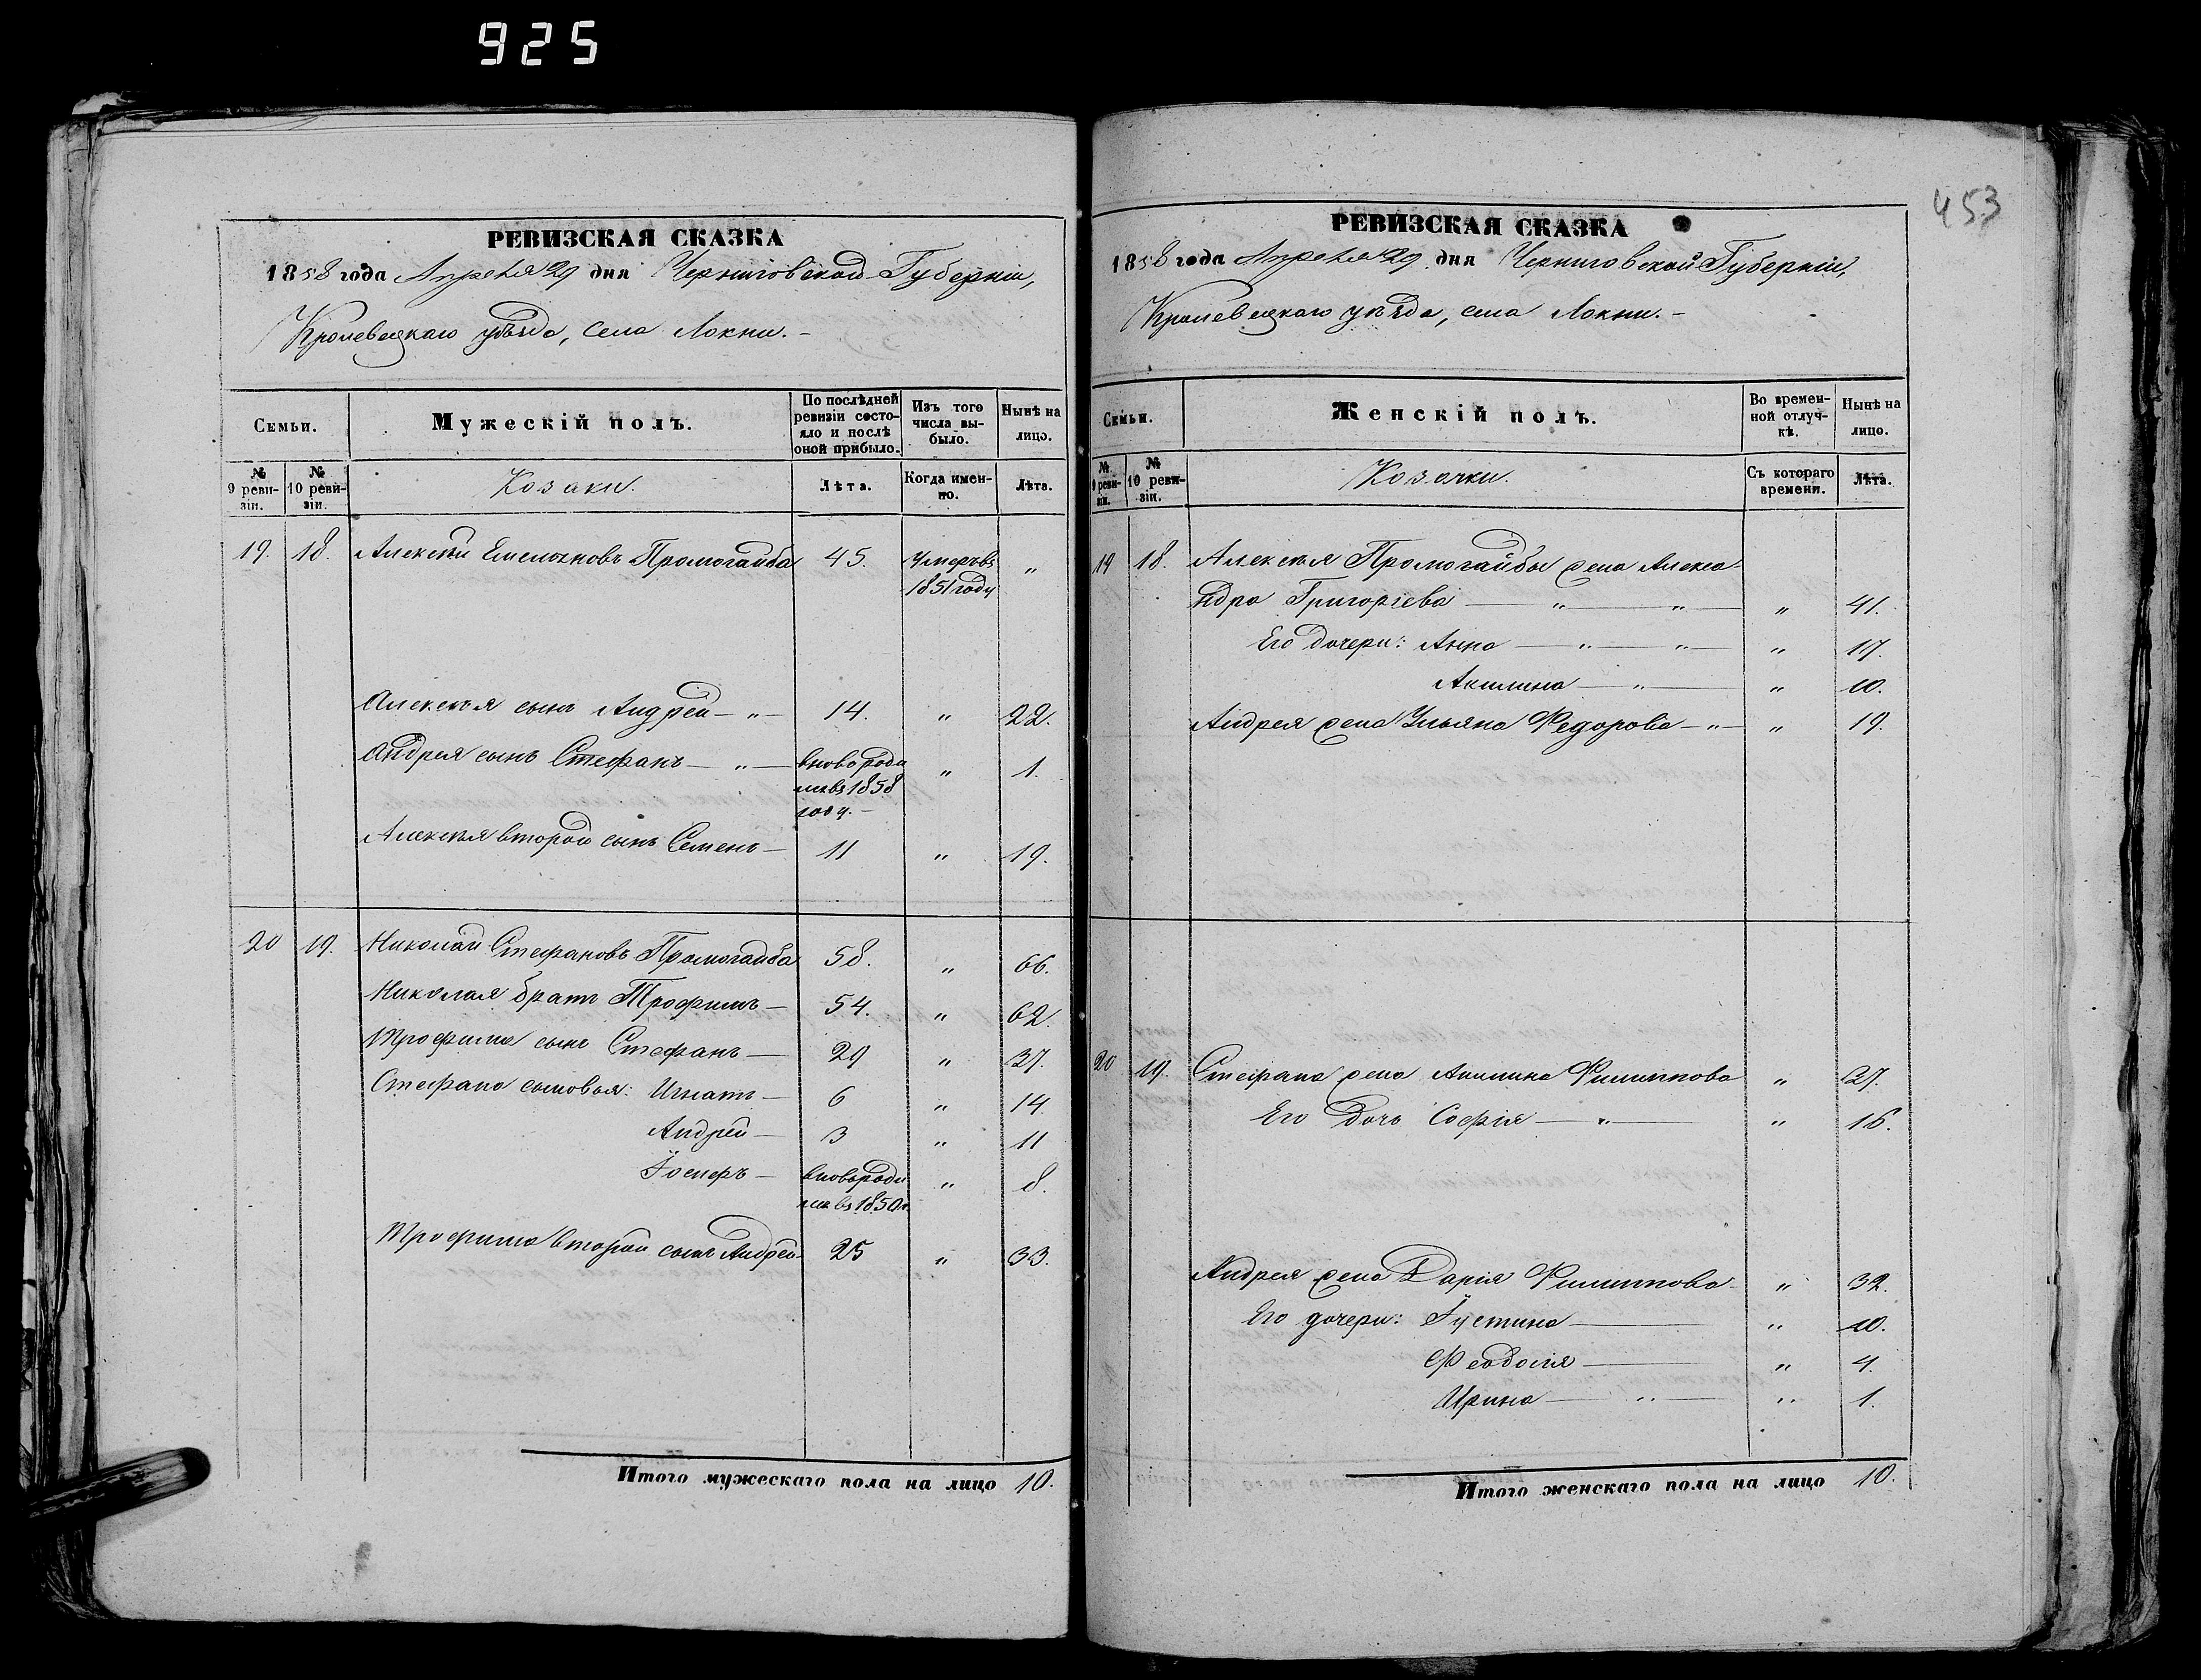 925
453
РЕВИЗСКАЯ СКАЗКА
1858 года Апреля 29 дня Черниговской Губерніи,
Кролевецкаго уѣзда, села Локни. –
Семьи.
Мужескій полъ.
По послѣдней ревизіи состояло и послѣ оной прибыло.
Изъ того числа выбыло.
Нынѣ на лицо.
№ 9 ревизіи.
№ 10 ревизіи.
Козаки.
Лѣта.
Когда именно.
Лѣта.
19. 18. Алексѣй Емельяновъ Промогайба 45. Умеръ въ "
1851 году
Алексѣя сынъ Андрей – " – 14. " 22.
Андрея сынъ Стефанъ – " – вновь роди " 1.
лся въ 1858
году. –
Алексѣя второй сынъ Семенъ – 11 " 19.
20 19. Николай Стефановъ Промогайба 58. " 66.
Николая братъ Трофимъ – 54. " 62.
Трофима сынъ Стефанъ – 29 " 37.
Стефана сыновья: Игнатъ – 6 " 14.
Андрей – 3 " 11
Іосифъ – вновь роди " 8.
лся въ 1850 г.
Трофима второй сынъ Андрей – 25 " 33.
Итого мужескаго пола на лицо 10.
РЕВИЗСКАЯ СКАЗКА
1858 года Апреля 29 дня Черниговской Губерніи,
Кролевецкаго уѣзда, села Локни. –
Семьи.
Женскій полъ.
Во временной отлучкѣ.
Нынѣ на лицо.
№ 9 ревизіи.
№ 10 ревизіи.
Козачки.
Съ котораго времени.
Лѣта.
19 18. Алексѣя Промогайбы жена Алекса-
ндра Григоріева – " – " – " 41.
Его дочери: Анна – " – " – " 17.
Акилина – " – " 10.
Андрея жена Ульяна Федорова – " – " 19.
20 19. Стефана жена Акилина Филиппова " 27.
Его дочь Софія – " – " 16.
Андрея жена Дарія Филиппова – " 32.
Его дочери: Іустина – " 10.
Феодосія – " 4.
Ирина – " – " 1.
Итого женскаго пола на лицо 10.